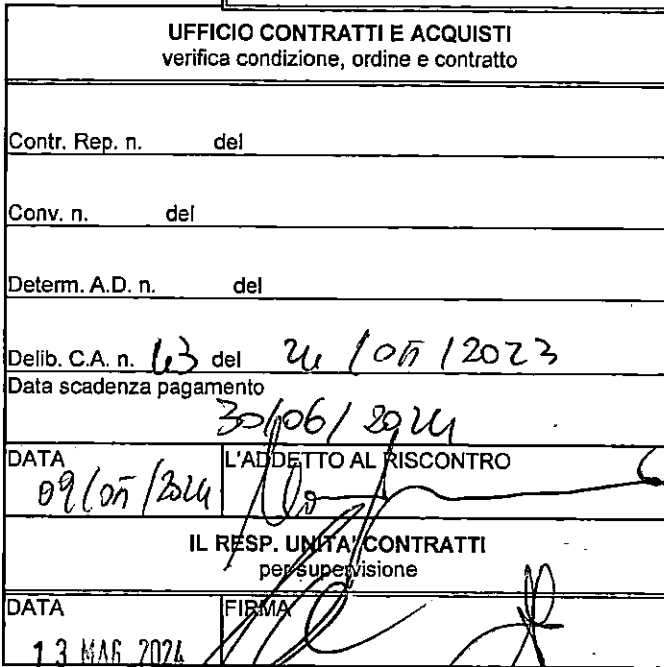 UFFICIO CONTRATTI E ACQUISTI
verifica condizione, ordine e contratto
Contr. Rep. n. del
Conv. n. del
Determ. A.D. n. del
Delib. C.A. n. 43 del 24/05/2023
Data scadenza pagamento
30/06/2024
DATA L'ADDETTO AL RISCONTRO
09/05/2024
IL RESP. UNITA' CONTRATTI
per supervisione
DATA FIRMA
13 MAG. 2024